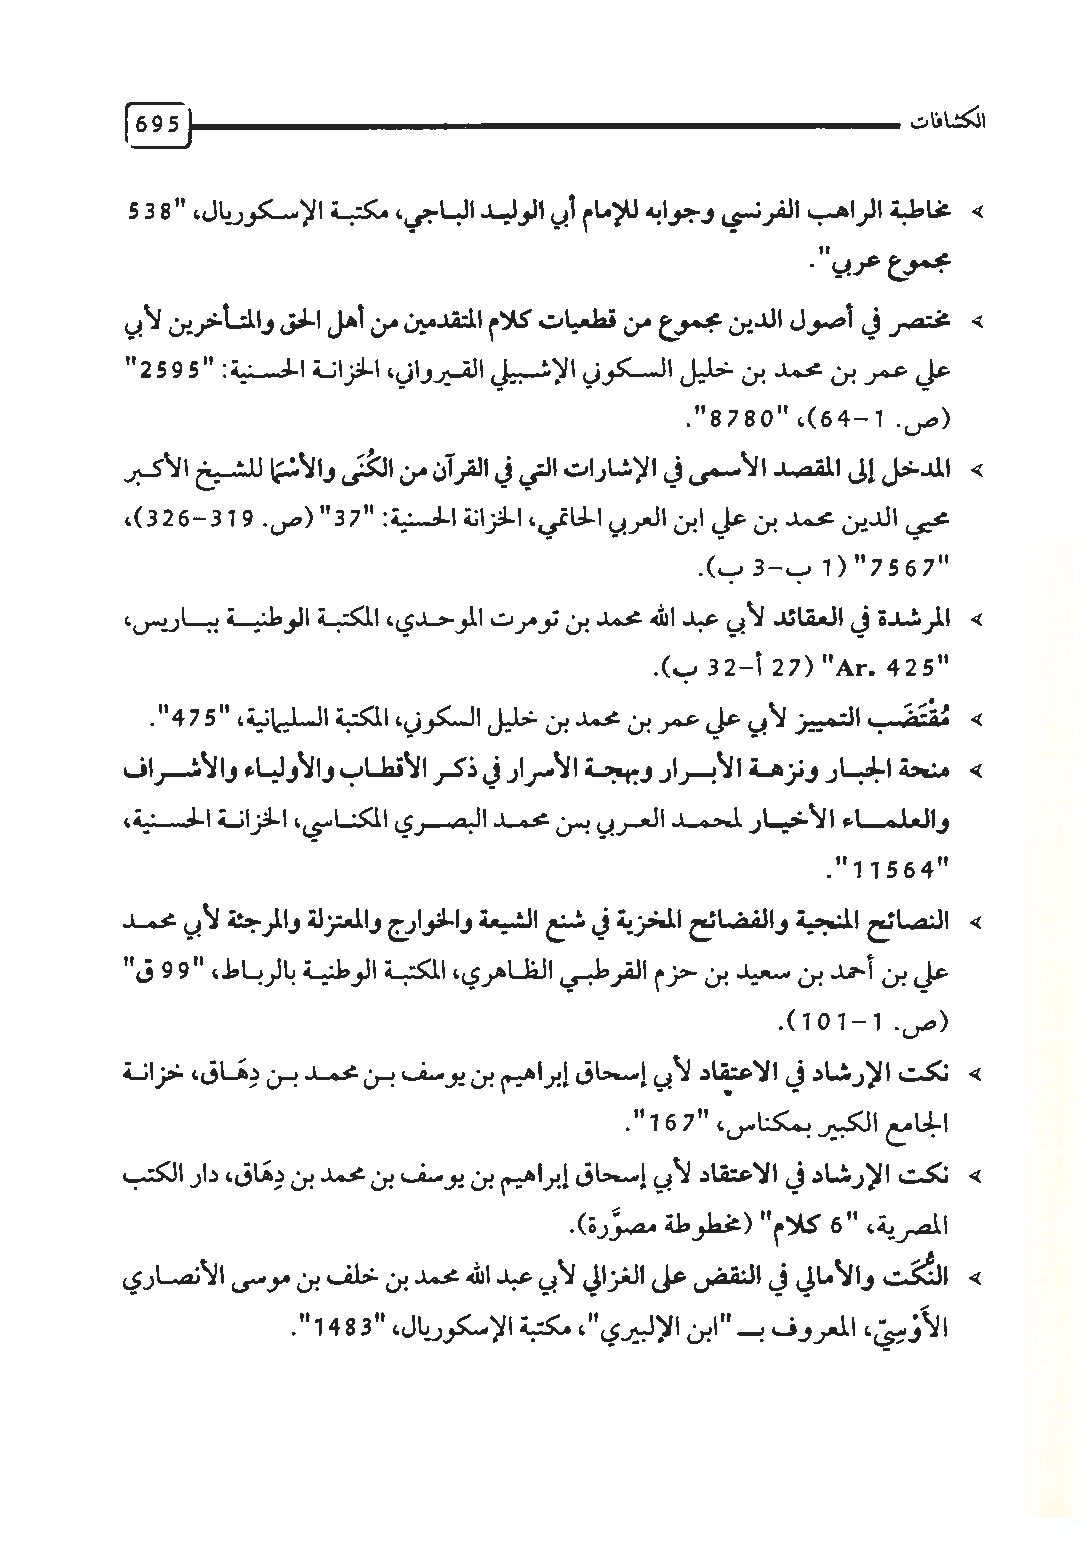 الكشافات 695
> مخاطبة الراهب الفرنسي وجوابه للإمام أبي الوليد الباجي، مكتبة الإسكوريال، "538
مجموع عربي".
> مختصر في أصول الدين مجموع من قطعيات كلام المتقدمين من أهل الحق والمتأخرين لأبي
علي عمر بن محمد بن خليل السكوني الإشبيلي القيرواني، الخزانة الحسنية: "2595"
(ص. 1-64)، "8780".
> المدخل إلى المقصد الأسمى في الإشارات التي في القرآن من الكُنَى والأسْمَا للشيخ الأكبر
محيي الدين محمد بن علي ابن العربي الحاتمي، الخزانة الحسنية: "37" (ص. 319-326)،
"7567" (1 ب-3 ب).
> المرشدة في العقائد لأبي عبد الله محمد بن تومرت الموحدي، المكتبة الوطنية بباريس،
"Ar. 425" (27 أ-32 ب).
> مُقْتَضَب التمييز لأبي علي عمر بن محمد بن خليل السكوني، المكتبة السليمانية، "475".
> منحة الجبار ونزهة الأبرار وبهجة الأسرار في ذكر الأقطاب والأولياء والأشراف
والعلماء الأخيار لمحمد العربي بن محمد البصري المكناسي، الخزانة الحسنية،
"11564".
> النصائح المنجية والفضائح المخزية في شنع الشيعة والخوارج والمعتزلة والمرجئة لأبي محمد
علي بن أحمد بن سعيد بن حزم القرطبي الظاهري، المكتبة الوطنية بالرباط، "99 ق"
(ص. 1-101).
> نكت الإرشاد في الاعتقاد لأبي إسحاق إبراهيم بن يوسف بن محمد بن دِهَاق، خزانة
الجامع الكبير بمكناس، "167".
> نكت الإرشاد في الاعتقاد لأبي إسحاق إبراهيم بن يوسف بن محمد بن دِهَاق، دار الكتب
المصرية، "6 كلام" (مخطوطة مصوَّرة).
> النُّكَت والأمالي في النقض على الغزالي لأبي عبد الله محمد بن خلف بن موسى الأنصاري
الأَوْسِيّ، المعروف بـ "ابن الإلبيري"، مكتبة الإسكوريال، "1483".